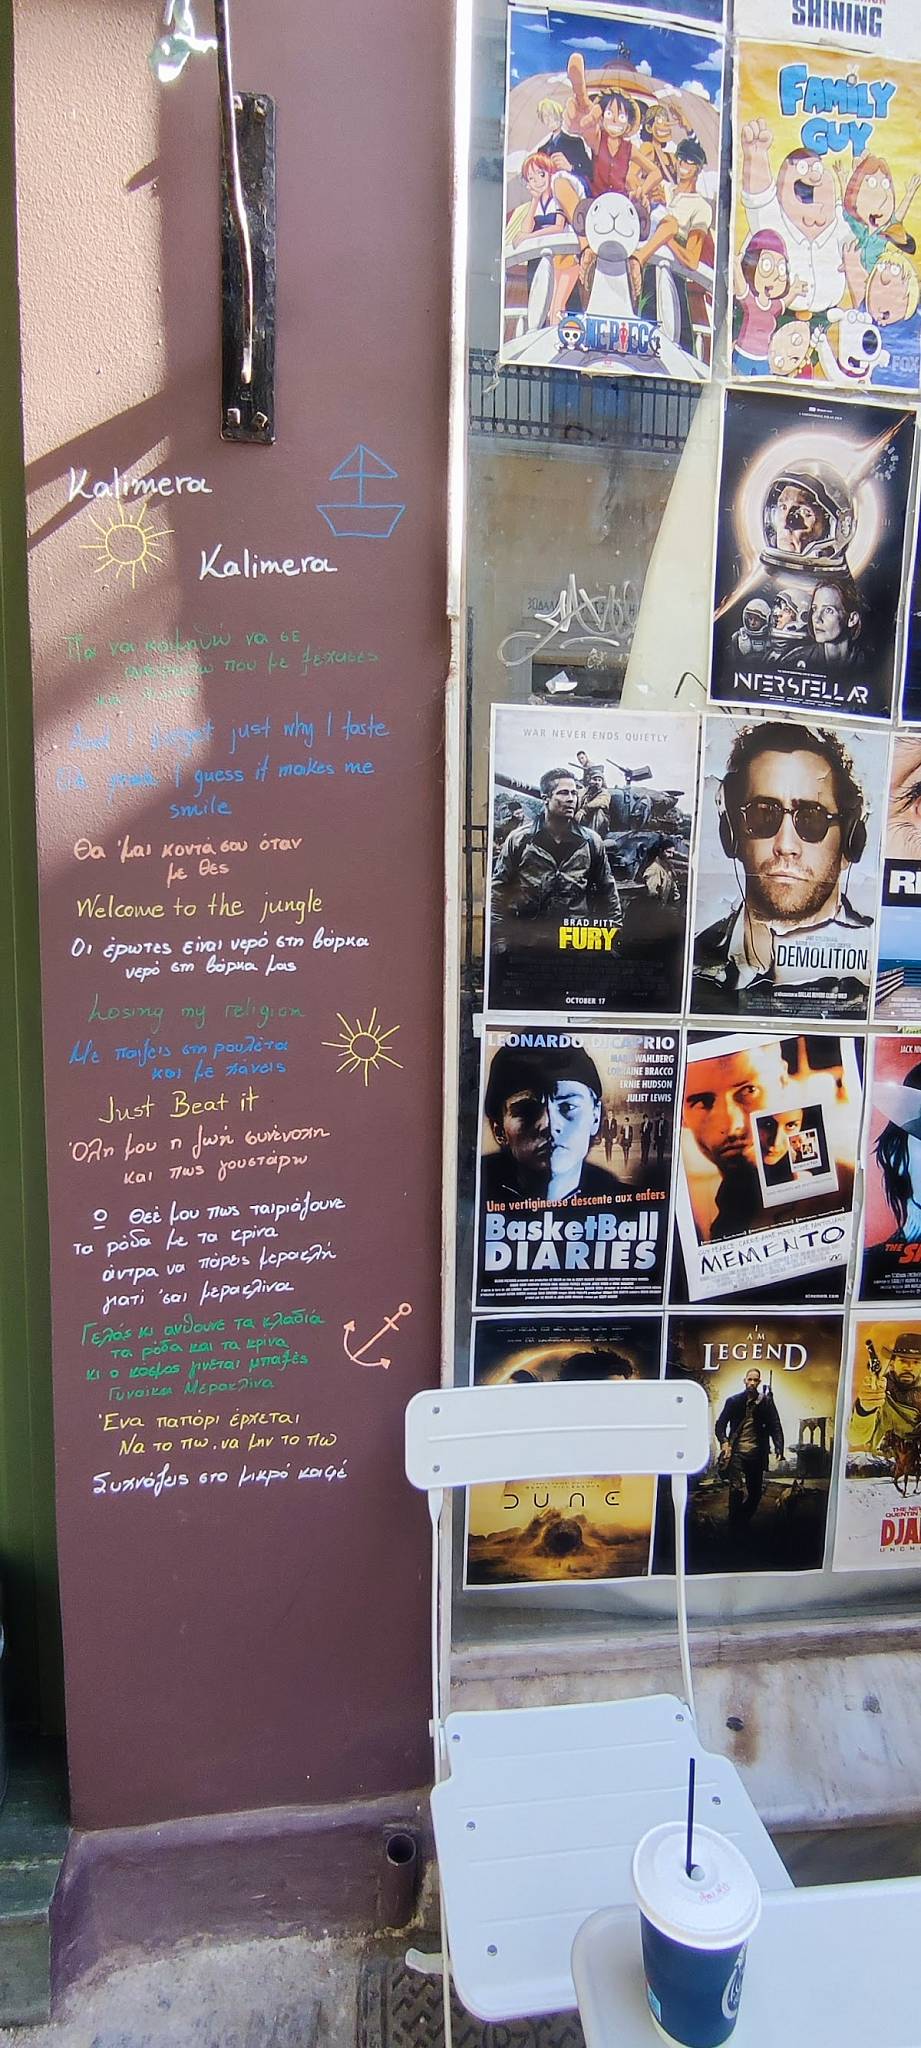 Kalimera
Kalimera
να σε
που με ξέχασες
I forget just why I taste
I guess it makes me
smile
Θα 'μαι κοντά σου όταν
με θες
Welcome to the jungle
Οι έρωτες είναι νερό στη βάρκα
νερό στη βάρκα μας
Losing my religion
Με παίζεις στη ρουλέτα
και με χάνεις
Just Beat it
Όλη μου η ζωή συνένοχη
και πως γουστάρω
Ο Θεέ μου πως ταιριάζουνε
τα ρόδα με τα κρίνα
άντρα να πάρεις μερακλή
γιατί 'σαι μερακλίνα
Γελάς κι ανθουνε τα κλαδιά
τα ρόδα και τα κρίνα
κι ο κόσμος γίνεται μπαξές
Γυναίκα Μερακλίνα
Ένα παπόρι έρχεται
Να το πω. να μην το πω
Συχνάζεις στο μικρό καφέ
SHINING
ONE PIECE
FAMILY
GUY
FOX
INTERSTELLAR
WAR NEVER ENDS QUIETLY.
BRAD PITT
FURY
OCTOBER 17
DEMOLITION
LEONARDO DICAPRIO
MARK WAHLBERG
LORRAINE BRACCO
ERNIE HUDSON
JULIET LEWIS
Une vertigineuse descente aux enfers
BasketBall
DIARIES
GUY PEARCE CARRIE-ANNE MOSS JOE PANTOLIANO
MEMENTO
JACK
THE
DUNE
I
AM
LEGEND
THE NEW
QUENTIN
DJA
UNCH